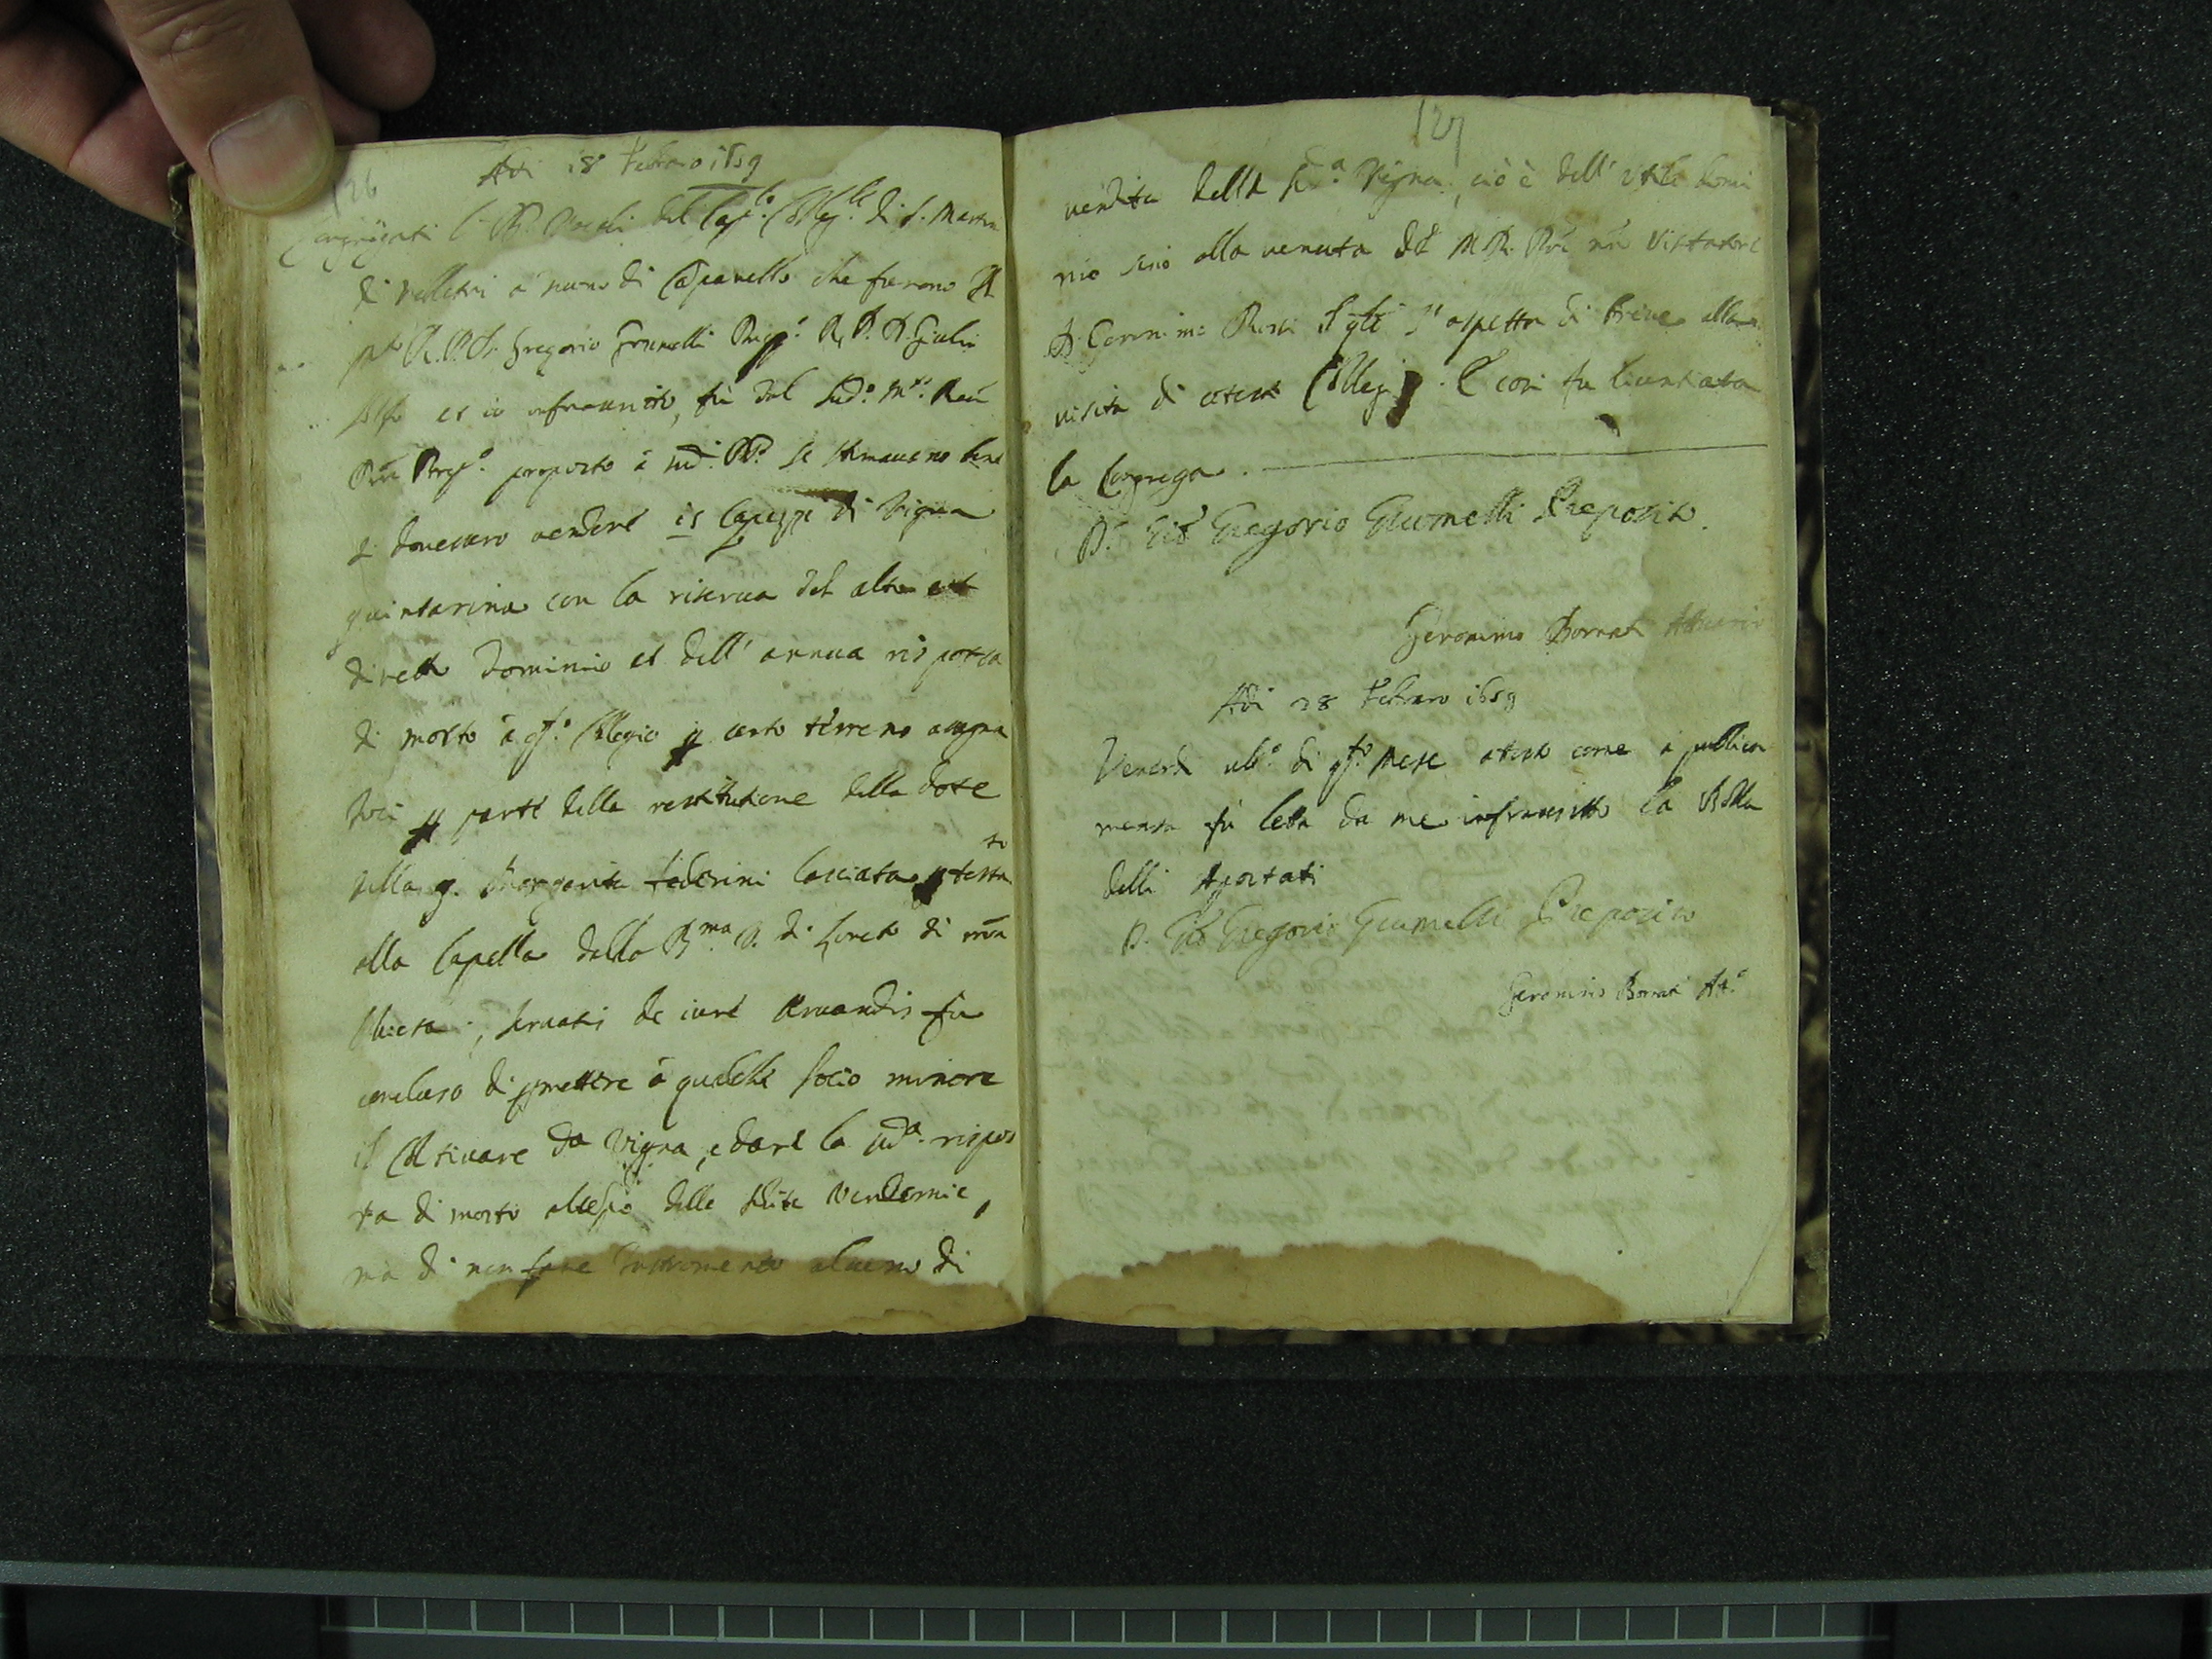 126
Adi 18 Febraro 1659
Congregati li PP. Vocali del Cap.lo Coll.le di S. Martino
di Velletri a suono di Campanello che furono il
R. P. D. Gregorio Giumelli Prep.to R. P. D. Giulio
et io infrascritto, fù dal sud.o M.to Reu.
Prê Prep.to proposto à sud.i PP. se stimauano bene
si douessero uendere is Capezzi di Vigna
quintarina con la riserua del alto et
diretto Dominio et dell' annua risposta
di mosto à q.to Collegio p certo terreno assegna
toci p parte della restitutione della dote
della q. Margarita federini lasciata p testa
to
alla Capella della B.ma V. di Loreto di nrâ
Chiesa; seruatis de iure seruandis fu
concluso di pmettere à qualche socio minore
il Coltiuare da Vigna, e dare la sud.a rispos
ta di mosto al tempo delle solite Vendemie,
ma di non fare Instromento alcuno di
127
uendita della sud.a Vigna, ciò è dell' utile domi
nio sino alla uenuta del M. R. Prê nrô Visitatore
D. Geronimo Rossi il qle s' aspetta di breue alla
uisita di cotesti Collegi. E così fu licentiata
la Congrega.
D. Gio Gregorio Giumelli Preposito.
Geronimo Bornati Attuario
Adi 28 Febraro 1659
Venerdì ult.o di q.to Mese atteso come a publica
mensa fù letta da me infrascritto la Bolla
delli Apostati
D. Gio Gregorio Giumelli Preposito
Geronimo Bornati Att.o